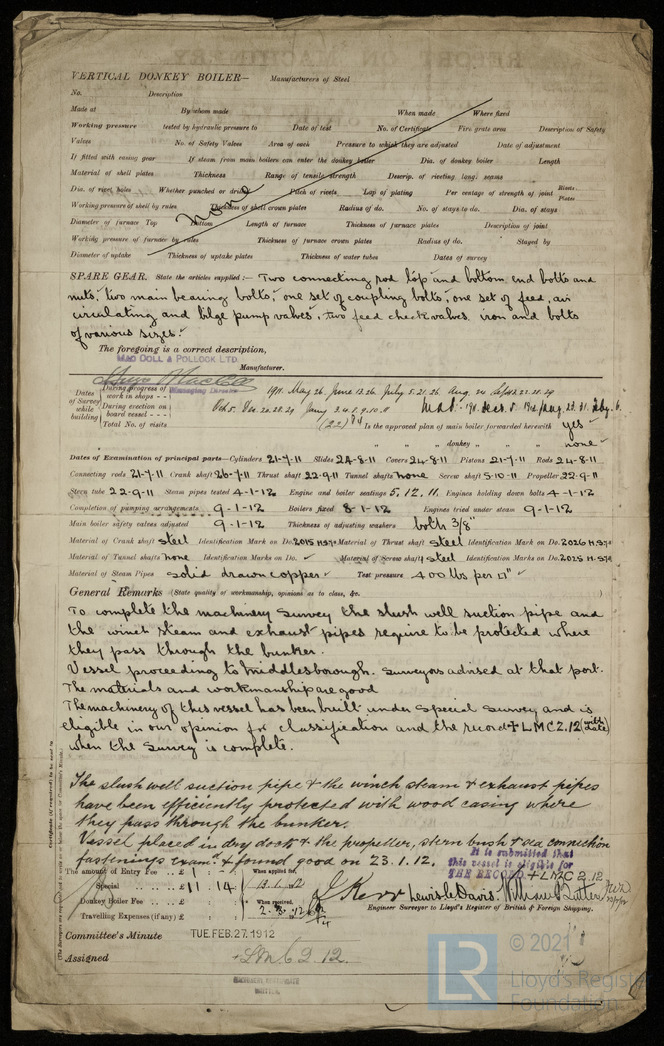 VERTICAL DONKEY BOILER— Manufacturers of Steel
No. Description
Made at By whom made When made Where fixed
Working pressure tested by hydraulic pressure to Date of test No. of Certificate Fire grate area Description of Safety
Valves No. of Safety Valves Area of each Pressure to which they are adjusted Date of adjustment
If fitted with easing gear If steam from main boilers can enter the donkey boiler Dia. of donkey boiler Length
Material of shell plates Thickness Range of tensile strength Descrip. of riveting long. seams
Dia. of rivet holes Whether punched or drilled Pitch of rivets Lap of plating Per centage of strength of joint Rivets Plates
Working pressure of shell by rules Thickness of shell crown plates Radius of do. No. of stays to do. Dia. of stays
none
Diameter of furnace Top Bottom Length of furnace Thickness of furnace plates Description of joint
Working pressure of furnace by rules Thickness of furnace crown plates Radius of do. Stayed by
Diameter of uptake Thickness of uptake plates Thickness of water tubes Dates of survey
SPARE GEAR. State the articles supplied:— Two connecting rod top and bottom end bolts and
nuts, two main bearing bolts, one set of coupling bolts, one set of feed, air
circulating and bilge pump valves, two feed check valves iron and bolts
of various sizes.
The foregoing is a correct description,
MAC COLL & POLLOCK LTD.
Manufacturer.
Hugo MacColl
Managing Director
Dates of Survey while building
During progress of work in shops - - 1911. May 26. June 13. 26. July 5. 21. 26. Aug. 24 Sept 22. 28. 29
During erection on board vessel - - - Oct 5. Dec 20. 28. 29 Jany 3. 4. 8. 9. 10. 11
Total No. of visits (22) Is the approved plan of main boiler forwarded herewith yes
" " " donkey " " " none
Dates of Examination of principal parts—Cylinders 21-7-11 Slides 24-8-11 Covers 24-8-11 Pistons 21-7-11 Rods 24-8-11
Connecting rods 21-7-11 Crank shaft 26-7-11 Thrust shaft 22-9-11 Tunnel shafts none Screw shaft 5-10-11 Propeller 22-9-11
Stern tube 22-9-11 Steam pipes tested 4-1-12 Engine and boiler seatings 5.12.11. Engines holding down bolts 4-1-12
Completion of pumping arrangements 9-1-12 Boilers fixed 8-1-12 Engines tried under steam 9-1-12
Main boiler safety valves adjusted 9-1-12 Thickness of adjusting washers both 3/8"
Material of Crank shaft steel Identification Mark on Do. 2015 HSJ Material of Thrust shaft steel Identification Mark on Do. 2026 HSJ
Material of Tunnel shafts none Identification Marks on Do. Material of Screw shafts steel Identification Marks on Do. 2025 HSJ
Material of Steam Pipes solid drawn copper Test pressure 400 lbs per □"
General Remarks (State quality of workmanship, opinions as to class, &c.
To complete the machinery survey the slush well suction pipe and
the winch steam and exhaust pipes require to be protected where
they pass through the bunker.
Vessel proceeding to Middlesborough. Surveyors advised at that port.
The materials and workmanship are good
The machinery of this vessel has been built under special survey and is
eligible in our opinion for classification and the record +LMC 2.12 (with date)
when the survey is complete.
The slush well suction pipe & the winch steam & exhaust pipes
have been efficiently protected with wood casing where
they pass through the bunker.
Vessel placed in dry dock & the propeller, stern bush & sea connection
fastenings examd & found good on 23.1.12.
It is submitted that
this vessel is eligible for
THE RECORD +LMC 2.12
The amount of Entry Fee . . £ 1 : : When applied for,
Special . . . . £ 11 : 14 :
Donkey Boiler Fee . . . £ : : When received,
Travelling Expenses (if any) £ : :
J. Kerr Lewis E Davis. William Butler
Engineer Surveyor to Lloyd's Register of British & Foreign Shipping.
Committee's Minute TUE. FEB. 27. 1912
Assigned +LMC 2.12.
© 2021
LR
Lloyd's Register
Foundation